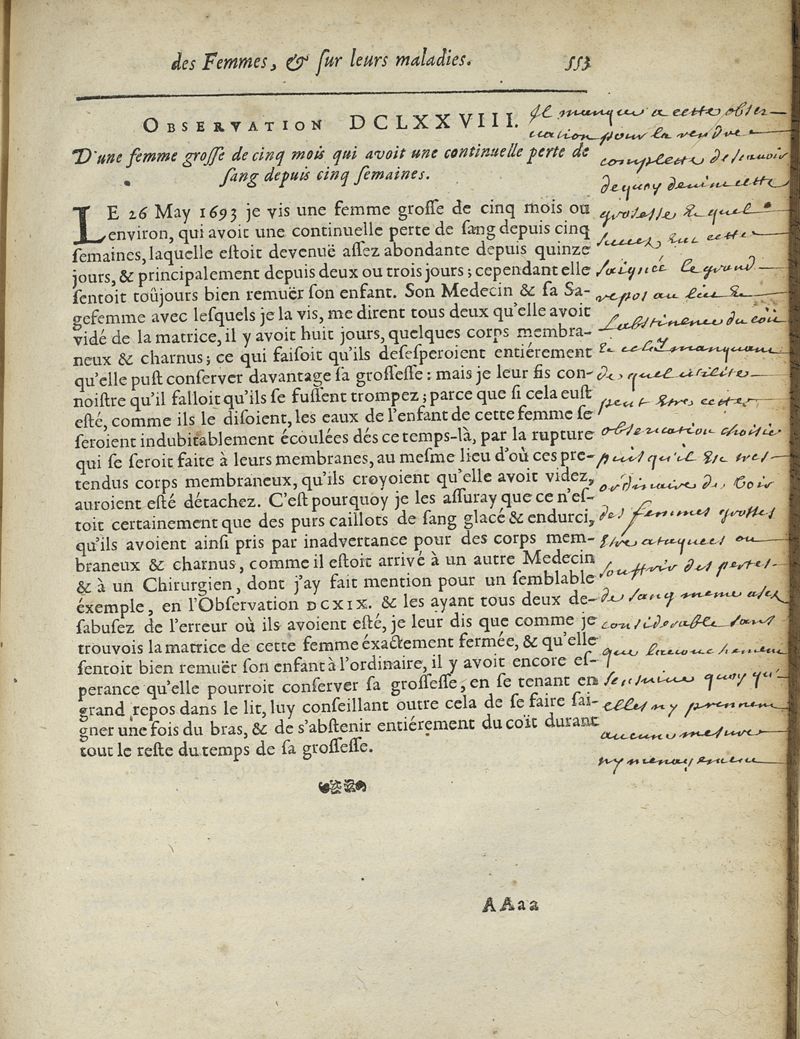 des Femmes, & sur leurs maladies. 553
OBSERVATION DCLXXVIII.
D'une femme grosse de cinq mois qui avoit une continuelle perte de
sang depuis cinq semaines.
LE 26 May 1693 je vis une femme grosse de cinq mois ou
environ, qui avoit une continuelle perte de sang depuis cinq
semaines, laquelle estoit devenuë assez abondante depuis quinze
jours, & principalement depuis deux ou trois jours; cependant elle
sentoit toûjours bien remuër son enfant. Son Medecin & sa Sa-
gefemme avec lesquels je la vis, me dirent tous deux qu'elle avoit
vidé de la matrice, il y avoit huit jours, quelques corps membra-
neux & charnus; ce qui faisoit qu'ils desesperoient entiérement
qu'elle pust conserver davantage sa grossesse: mais je leur fis con-
noistre qu'il falloit qu'ils se fussent trompez; parce que si cela eust
esté, comme ils le disoient, les eaux de l'enfant de cette femme se
seroient indubitablement écoulées dés ce temps-là, par la rupture
qui se seroit faite à leurs membranes, au mesme lieu d'où ces pre-
tendus corps membraneux, qu'ils croyoient qu'elle avoit videz,
auroient esté détachez. C'est pourquoy je les assuray que ce n'es-
toit certainement que des purs caillots de sang glacé & endurci,
qu'ils avoient ainsi pris par inadvertance pour des corps mem-
braneux & charnus, comme il estoit arrivé à un autre Medecin
& à un Chirurgien, dont j'ay fait mention pour un semblable
éxemple, en l'Observation DCXIX. & les ayant tous deux de-
sabusez de l'erreur où ils avoient esté, je leur dis que comme je
trouvois la matrice de cette femme éxactement fermée, & qu'elle
sentoit bien remuër son enfant à l'ordinaire, il y avoit encore es-
perance qu'elle pourroit conserver sa grossesse, en se tenant en
grand repos dans le lit, luy conseillant outre cela de se faire sai-
gner une fois du bras, & de s'abstenir entiérement du coït durant
tout le reste du temps de sa grossesse.
AAaa
Il manque a cette obser
uation pour la rendre
complette de scauoir
de quoy deuint cette
grossesse
saignée le grand
repos au lit &
labstinence du coit
de quel utilité
peut estre cette
obseruation choisie
puis qu'il est tres
ordinaire de voir
des femmes grosses
souffrir des pertes
de sang meme assez
considerable sans
quoy qu
elles ny prennent
aucune mesure